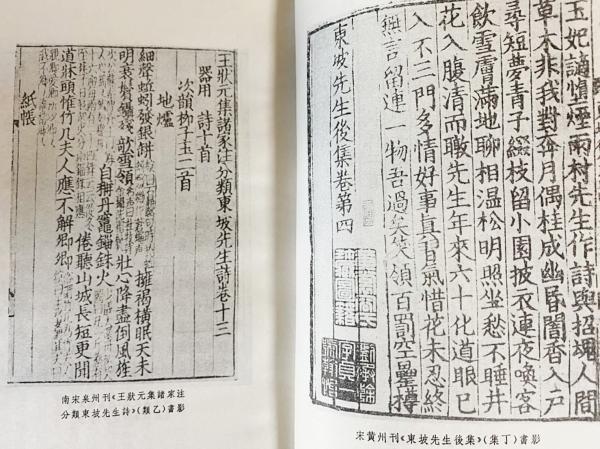 王狀元集諸家注分類東坡先生詩卷十三
器用 詩十首
次韻柳子玉二首
地爐
細聲蚯蚓發銀餅 擁褐橫眠天未
明衰鬢鑷殘欹雪領 壯心降盡倒風旌
自稱丹竈錙銖火 倦聽山城長短更聞
道牀頭惟竹几夫人應不解卿卿
紙帳
南宋泉州刊《王狀元集諸家注
分類東坡先生詩》(類乙)書影
玉妃謫墮煙雨村先生作詩與招魂人間
草木非我對奔月偶桂成幽昏闇香入戶
尋短夢青子綴枝留小園披衣連夜喚客
飲雪膚滿地聊相温松明照坐愁不睡井
花入腹清而暾先生年來六十化道眼已
入不二門多情好事真習氣惜花未忍終
無言留連一物吾過矣笑領百罰空罍樽
東坡先生後集卷第四
宋黃州刊《東坡先生後集》(集丁)書影